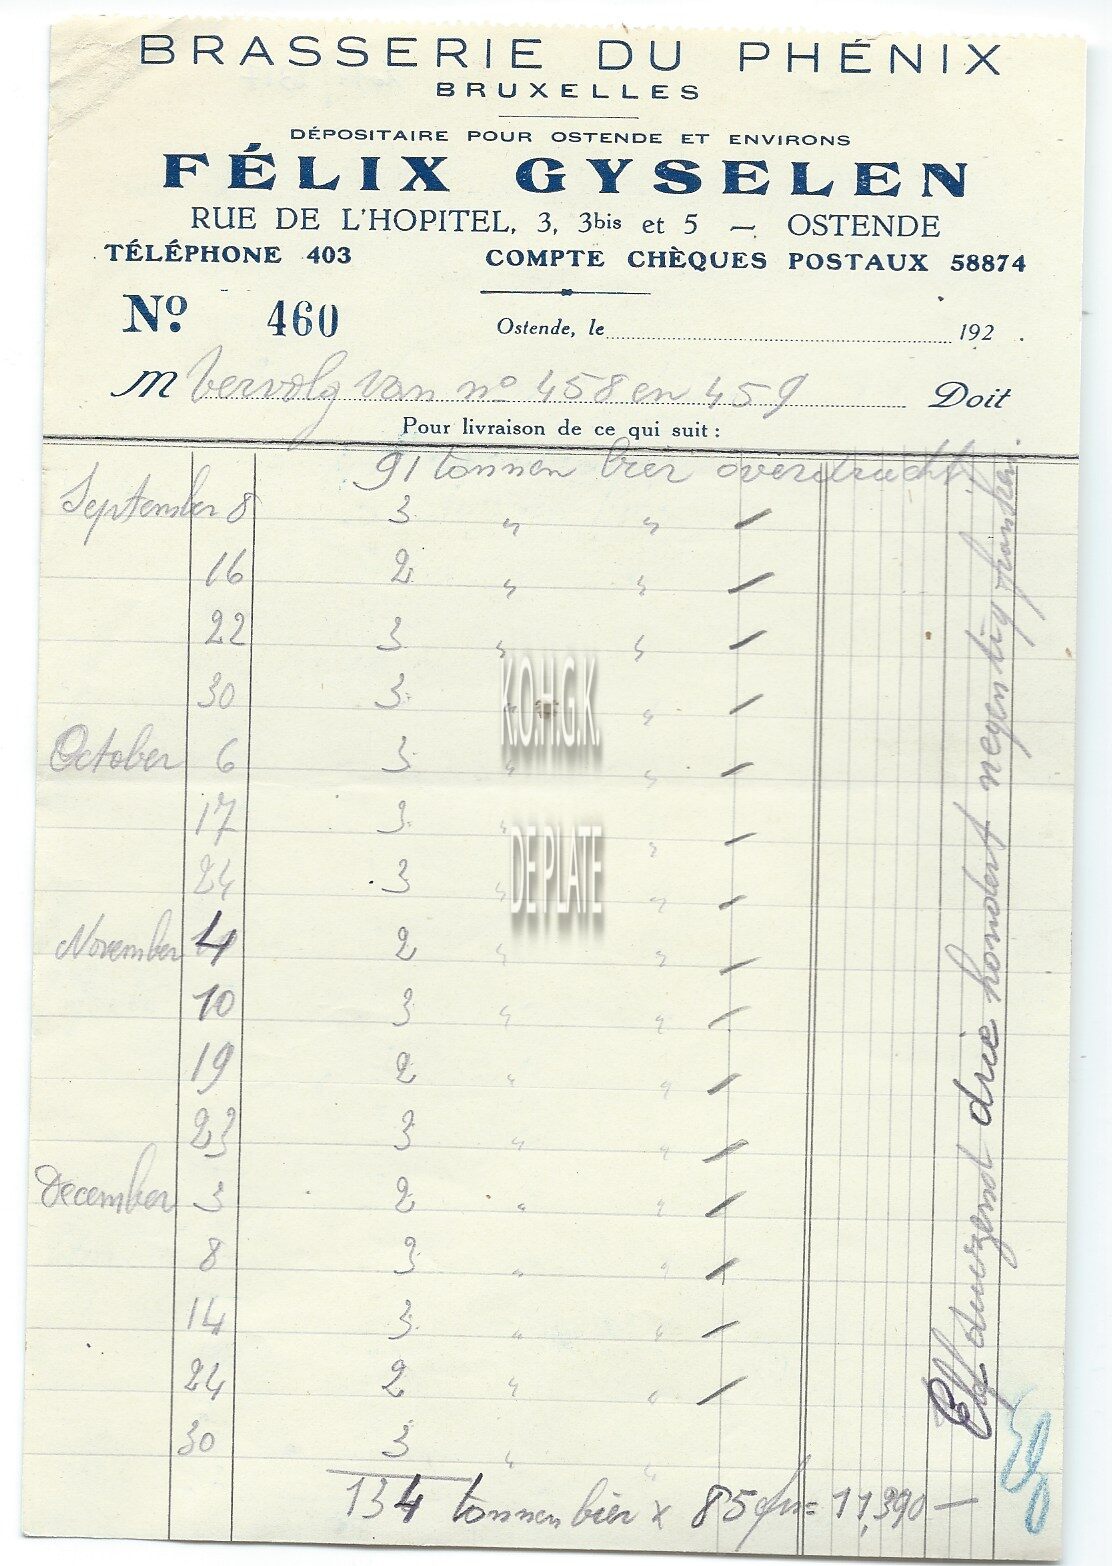 BRASSERIE DU PHÉNIX
BRUXELLES
DÉPOSITAIRE POUR OSTENDE ET ENVIRONS
FÉLIX GYSELEN
RUE DE L'HOPITEL, 3, 3bis et 5 — OSTENDE
TÉLÉPHONE 403 COMPTE CHÈQUES POSTAUX 58874
No. 460 Ostende, le 192 .
M Vervolg van no 458 en 459 Doit
Pour livraison de ce qui suit :
91 tonnen bier overdracht
September 8 3 " "
16 2 " "
22 3 " "
30 3 " "
October 6 3 " "
17 3 " "
24 3 " "
November 4 2 " "
10 3 " "
19 2 " "
23 3 " "
December 3 2 " "
8 3 " "
14 3 " "
24 2 " "
30 3 " "
134 tonnen bier x 85 fr = 11,390 —
Elf duizend drie hondert negentig franken
K.O.H.G.K.
DE PLATE